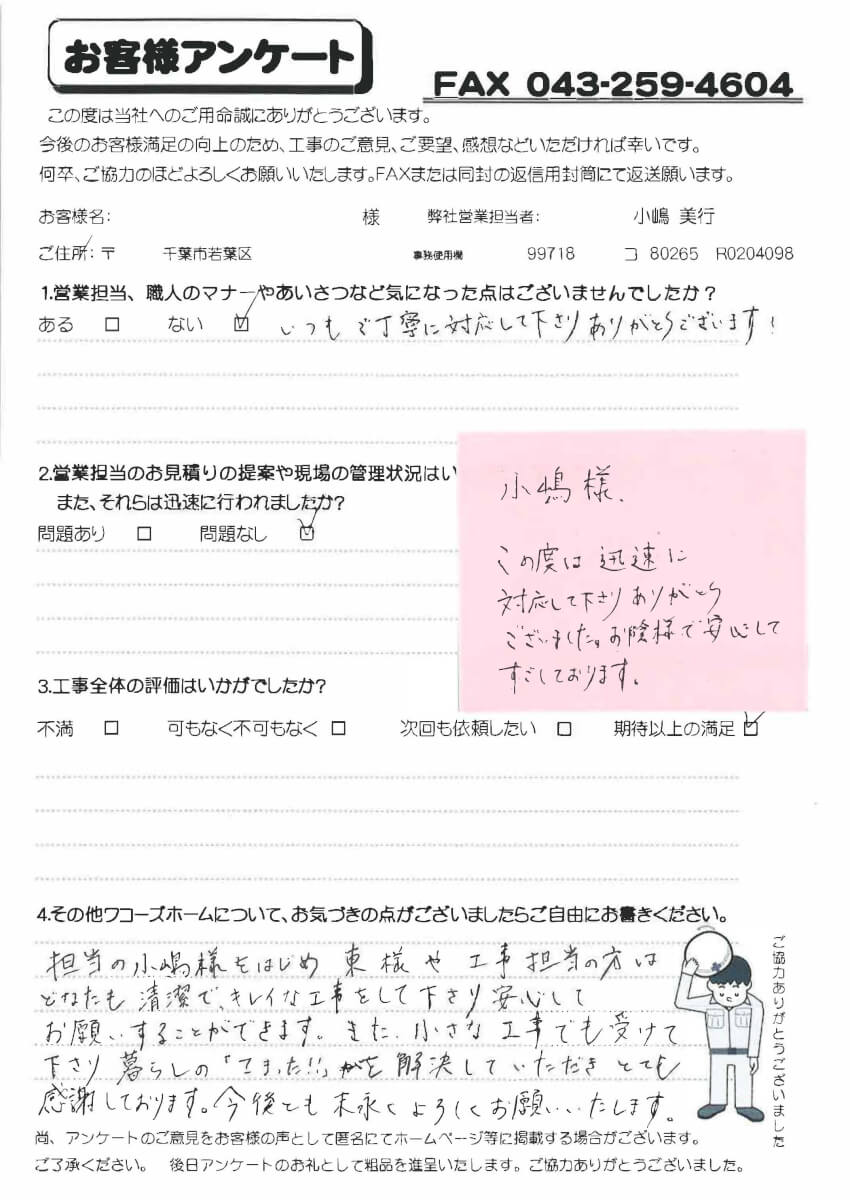 お客様アンケート
FAX 043-259-4604
この度は当社へのご用命誠にありがとうございます。
今後のお客様満足の向上のため、工事のご意見、ご要望、感想などいただければ幸いです。
何卒、ご協力のほどよろしくお願いいたします。FAXまたは同封の返信用封筒にて返送願います。
お客様名: 様 弊社営業担当者: 小嶋 美行
ご住所:〒 千葉市若葉区 事務使用欄 99718 コ 80265 R0204098
1.営業担当、職人のマナーやあいさつなど気になった点はございませんでしたか?
ある □ ない ☑ いつもご丁寧に対応して下さりありがとうございます!
2.営業担当のお見積りの提案や現場の管理状況はい
また、それらは迅速に行われましたか?
問題あり □ 問題なし ☑
小嶋様、
この度は迅速に
対応して下さりありがとう
ございました。お陰様で安心して
すごしております。
3.工事全体の評価はいかがでしたか?
不満 □ 可もなく不可もなく □ 次回も依頼したい □ 期待以上の満足 ☑
4.その他ワコーズホームについて、お気づきの点がございましたらご自由にお書きください。
担当の小嶋様をはじめ 東様や工事担当の方は
どなたも清潔で、キレイな工事をして下さり安心して
お願いすることができます。また、小さな工事でも受けて
下さり暮らしの「こまった!!」を解決していただきとても
感謝しております。今後とも末永くよろしくお願いいたします。
ご協力ありがとうございました
尚、アンケートのご意見をお客様の声として匿名にてホームページ等に掲載する場合がございます。
ご了承ください。 後日アンケートのお礼として粗品を進呈いたします。ご協力ありがとうございました。